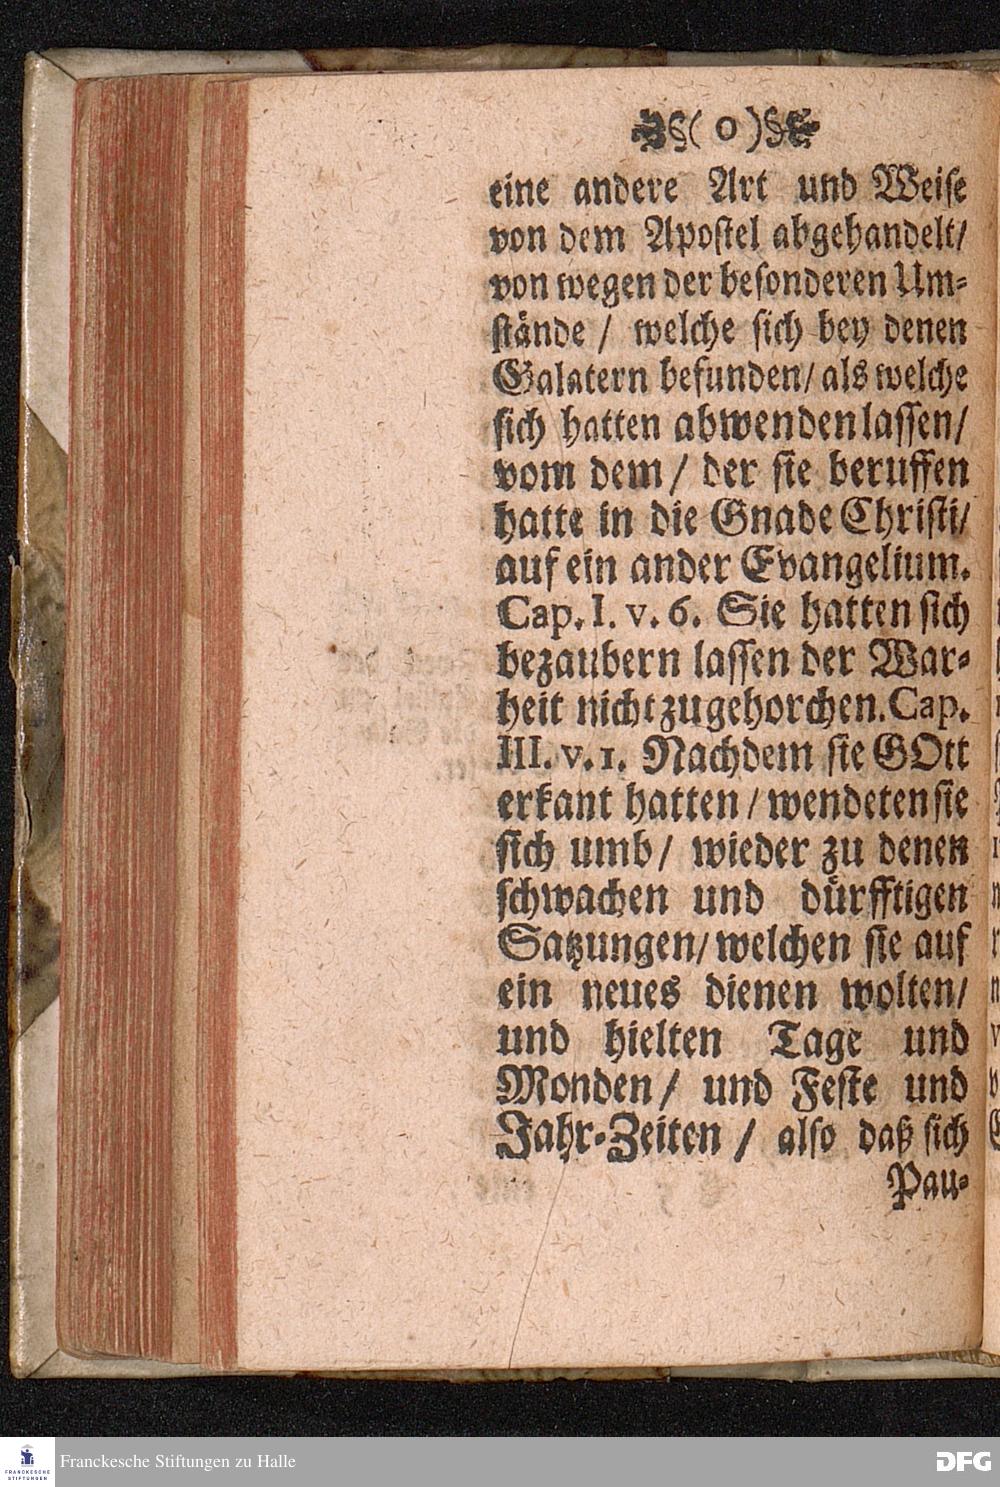 §( o )§
eine andere Art und Weise
von dem Apostel abgehandelt/
von wegen der besonderen Um-
stände / welche sich bey denen
Galatern befunden/ als welche
sich hatten abwenden lassen/
vom dem / der sie beruffen
hatte in die Gnade Christi/
auf ein ander Evangelium.
Cap. I. v. 6. Sie hatten sich
bezaubern lassen der War-
heit nicht zugehorchen. Cap.
III. v. 1. Nachdem sie GOtt
erkant hatten / wendeten sie
sich umb / wieder zu denen
schwachen und dürfftigen
Satzungen/ welchen sie auf
ein neues dienen wolten/
und hielten Tage und
Monden / und Feste und
Jahr-Zeiten / also daß sich
Pau-
FRANCKESCHE
STIFTUNGEN
Franckesche Stiftungen zu Halle
DFG